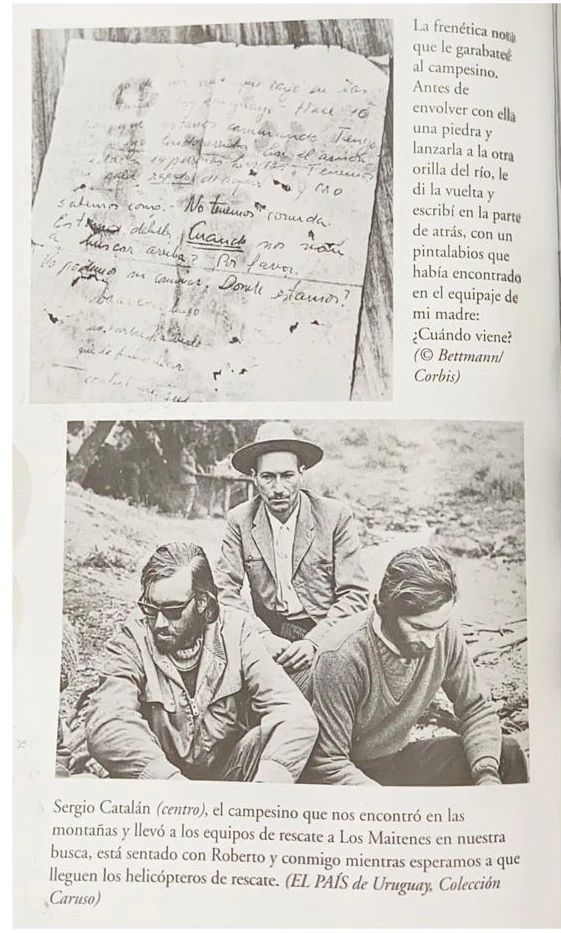 que cayó en las
uruguayo. Hace 10
que estamos caminando. Tengo
En el avión
14 personas Tenemos
que salir rápido de aquí y no
sabemos como. No tenemos comida.
Estamos débiles. Cuando nos van
a buscar arriba? Por favor.
No podemos ni caminar. Donde estamos?
La frenética nota
que le garabateé
al campesino.
Antes de
envolver con ella
una piedra y
lanzarla a la otra
orilla del río, le
di la vuelta y
escribí en la parte
de atrás, con un
pintalabios que
había encontrado
en el equipaje de
mi madre:
¿Cuándo viene?
(© Bettmann/
Corbis)
Sergio Catalán (centro), el campesino que nos encontró en las
montañas y llevó a los equipos de rescate a Los Maitenes en nuestra
busca, está sentado con Roberto y conmigo mientras esperamos a que
lleguen los helicópteros de rescate. (EL PAÍS de Uruguay, Colección
Caruso)